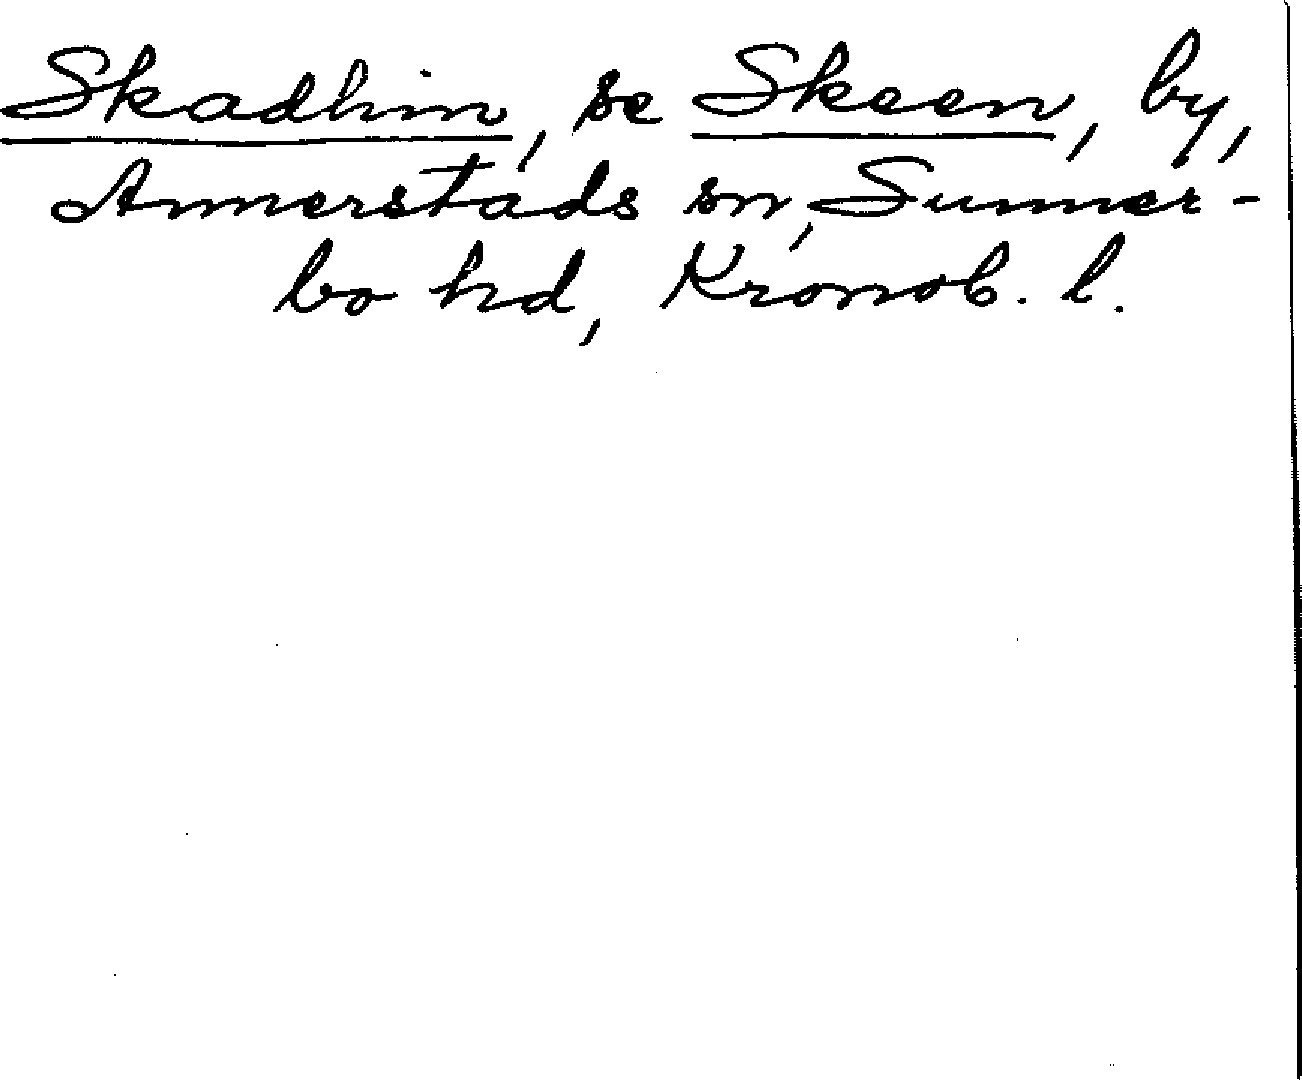 Skadhin, se Skeen, by,
Annerstads sn, Sunner-
bo hd, Kronob. l.